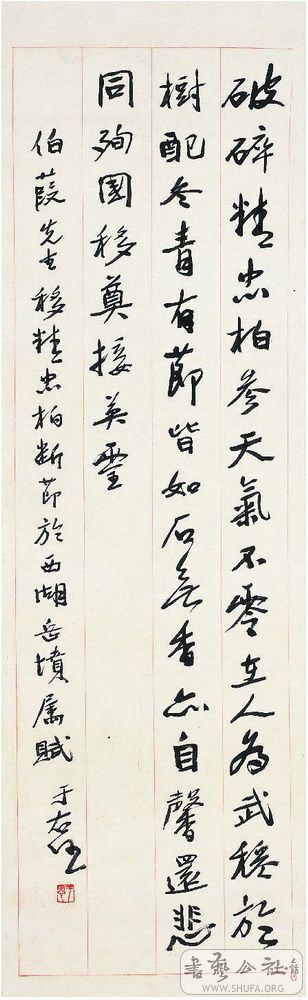 破碎精忠柏参天氣不零在人為武穆於
樹配冬青有節皆如石無香亦自馨還悲
同殉國移奠接英靈
伯葭先生移精忠柏斷節於西湖岳墳屬賦 于右任
書藝公社
WWW.SHUFA.ORG